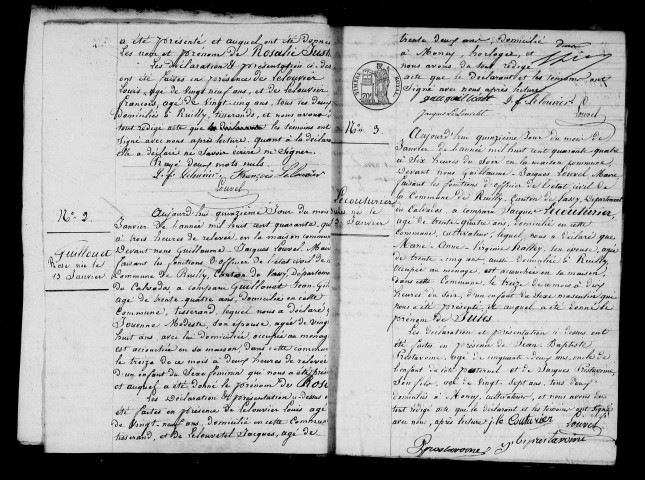 a été présenté et auquel ont été donnés
les nom et prénom de Rosalie Juste
Les déclaration et présentation ci-dess
ont été faites en présence de Lelouvier
Louis, agé de vingt neuf ans, et de Lelouvier
françois, agé de vingt-cinq ans, tous les deux
domiciliés à Ruilly, tisserands, et nous avons du
tout rédigé acte que les temoins ont
signé avec nous après lecture, quant à la déclara
elle a déclaré ne savoir écrire ni signer.
Rayé deux mots nuls.
L. f. Lelouvier François Lelouvier
Louvel
N° 2
Guillouet
Rose née le
13 Janvier
Aujourd'hui quinzième Jour du mois
Janvier de l'année mil huit cent quarante, qua
à trois heures de relevée, en la maison commune
Devant nous Guillaume-Jacques Louvel, Maire
faisant les fonctions d'officier de l'état civil de la
Commune de Ruilly, Canton de Vassy, département
du Calvados a comparu Guillouet Jean-
agé de trente-quatre ans, domicilié en cette
Commune, tisserand, lequel nous a déclaré q
Jouenne Modeste, son épouse, agée de vingt
huit ans, avec lui domiciliée, occupée au menage
est accouchée en sa maison dans cette commune
le treize de ce mois à deux heures de relevée
d'un enfant du sexe féminin qui nous a été prése
et auquel a été donné le prénom de Rose
Les Déclaration et présentation ci-dessus o
été faites en présence de Lelouvier Louis agé
de vingt-neuf ans, domicilié en cette Commune
tisserand, et de Jacques, agé de
trente deux ans, domicilié
à Moncy, horloger, et
nous avons du tout rédigé
acte que le déclarant et les temoins ont
signé avec nous après lecture
L. f. Lelouvier
Louvel
TIMBRE ROYAL
N° 3.
Lecouturier
né le
Janvier
Aujourd'hui quinzième Jour du mois de
Janvier de l'année mil huit cent quarante-quatre
à six heures du soir en la maison commune,
Devant nous Guillaume-Jacques Louvel, Maire,
faisant les fonctions d'officier de l'état civil de
la Commune de Ruilly, Canton de Vassy, Département
du Calvados, a comparu Jacques Lecouturier,
agé de trente-quatre ans, domicilié en cette
commune, cultivateur, lequel nous a déclaré que
Marie-Anne-Virginie son épouse, agée
de trente cinq ans, aussi domiciliée à Ruilly
occupée au ménage, est accouchée en sa maison,
dans cette Commune, le treize de ce mois à dix
heures du soir, d'un enfant du Sexe masculin que
nous a été présenté et auquel a été donné le
prénom de Jules
Les déclaration et présentation ci-dessus ont
été faites en présence de Jean Baptiste
Prestavoine, agé de cinquante-deux ans, oncle de
l'enfant du côté paternel et de Jacques Prestavoine,
son fils, agé de vingt sept ans, tous deux
domiciliés à Moncy, cultivateurs, et nous avons du
tout rédigé acte que le déclarant et les temoins ont signé
avec nous, après lecture. J. le Couturier
Louvel
Prestavoine J. b. prestavoine